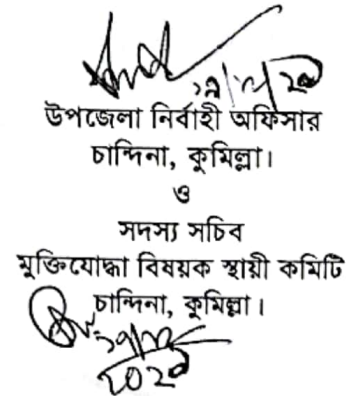 উপজেলা নির্বাহী অফিসার
চান্দিনা, কুমিল্লা।
ও
সদস্য সচিব
মুক্তিযোদ্ধা বিষয়ক স্থায়ী কমিটি
চান্দিনা, কুমিল্লা।